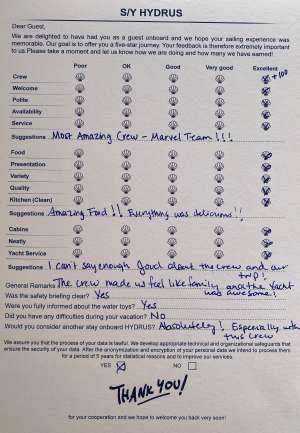 S/Y HYDRUS
Dear Guest,
We are delighted to have had you as a guest onboard and we hope your sailing experience was
memorable. Our goal is to offer you a five-star journey. Your feedback is therefore extremely important
to us. Please take a moment and let us know how we are doing and how many we have earned!
Poor OK Good Very good Excellent
Crew +100
Welcome
Polite
Availability
Service
Suggestions Most Amazing Crew - Marvel Team!!!
Food
Presentation
Variety
Quality
Kitchen (Clean)
Suggestions Amazing Food!! Everything was delicious!!
Cabins
Neatly
Yacht Service
Suggestions I can't say enough good about the crew and our trip!
General Remarks The crew made us feel like family and the Yacht was awesome!
Was the safety briefing clear? Yes
Were you fully informed about the water toys? Yes
Did you have any difficulties during your vacation? NO
Would you consider another stay onboard HYDRUS? Absolutely! Especially with this crew
We assure you that the process of your data is lawful. We develop appropriate technical and organizational safeguards that
ensure the security of your data. After the anonymization and encryption of your personal data we intend to process them
for a period of 5 years for statistical reasons and to improve our services.
YES NO
THANK YOU!
for your cooperation and we hope to welcome you back very soon!